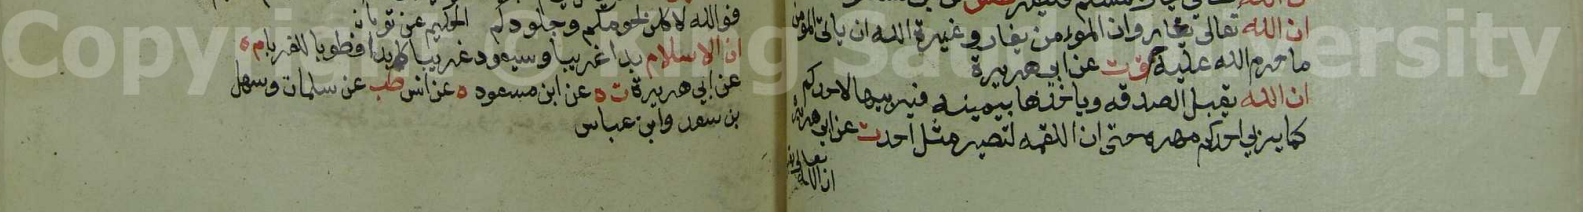 ان الله تعالى يغار وان المؤمن يغار وغيرة الله ان ياتى المؤمن
ما حرم الله عليه ق ت عن ابى هريرة
ان الله يقبل الصدقه وياخذها بيمينه فيربيها لاحدكم
كما يربي احدكم مهره حتى ان اللقمه لتصير مثل احد ت عن ابى هريرة
ان الله تعالى
فوالله لا كلن لحومكم وجلودكم الحكيم عن ثوبان
ان الاسلام بدا غريبا وسيعود غريبا كما بدا فطوبا للغربا م ه
عن ابي هريرة ت ه عن ابن مسعود ه عن انس طب عن سلمان وسهل
بن سعد وابن عباس
Copyright © King Saud University